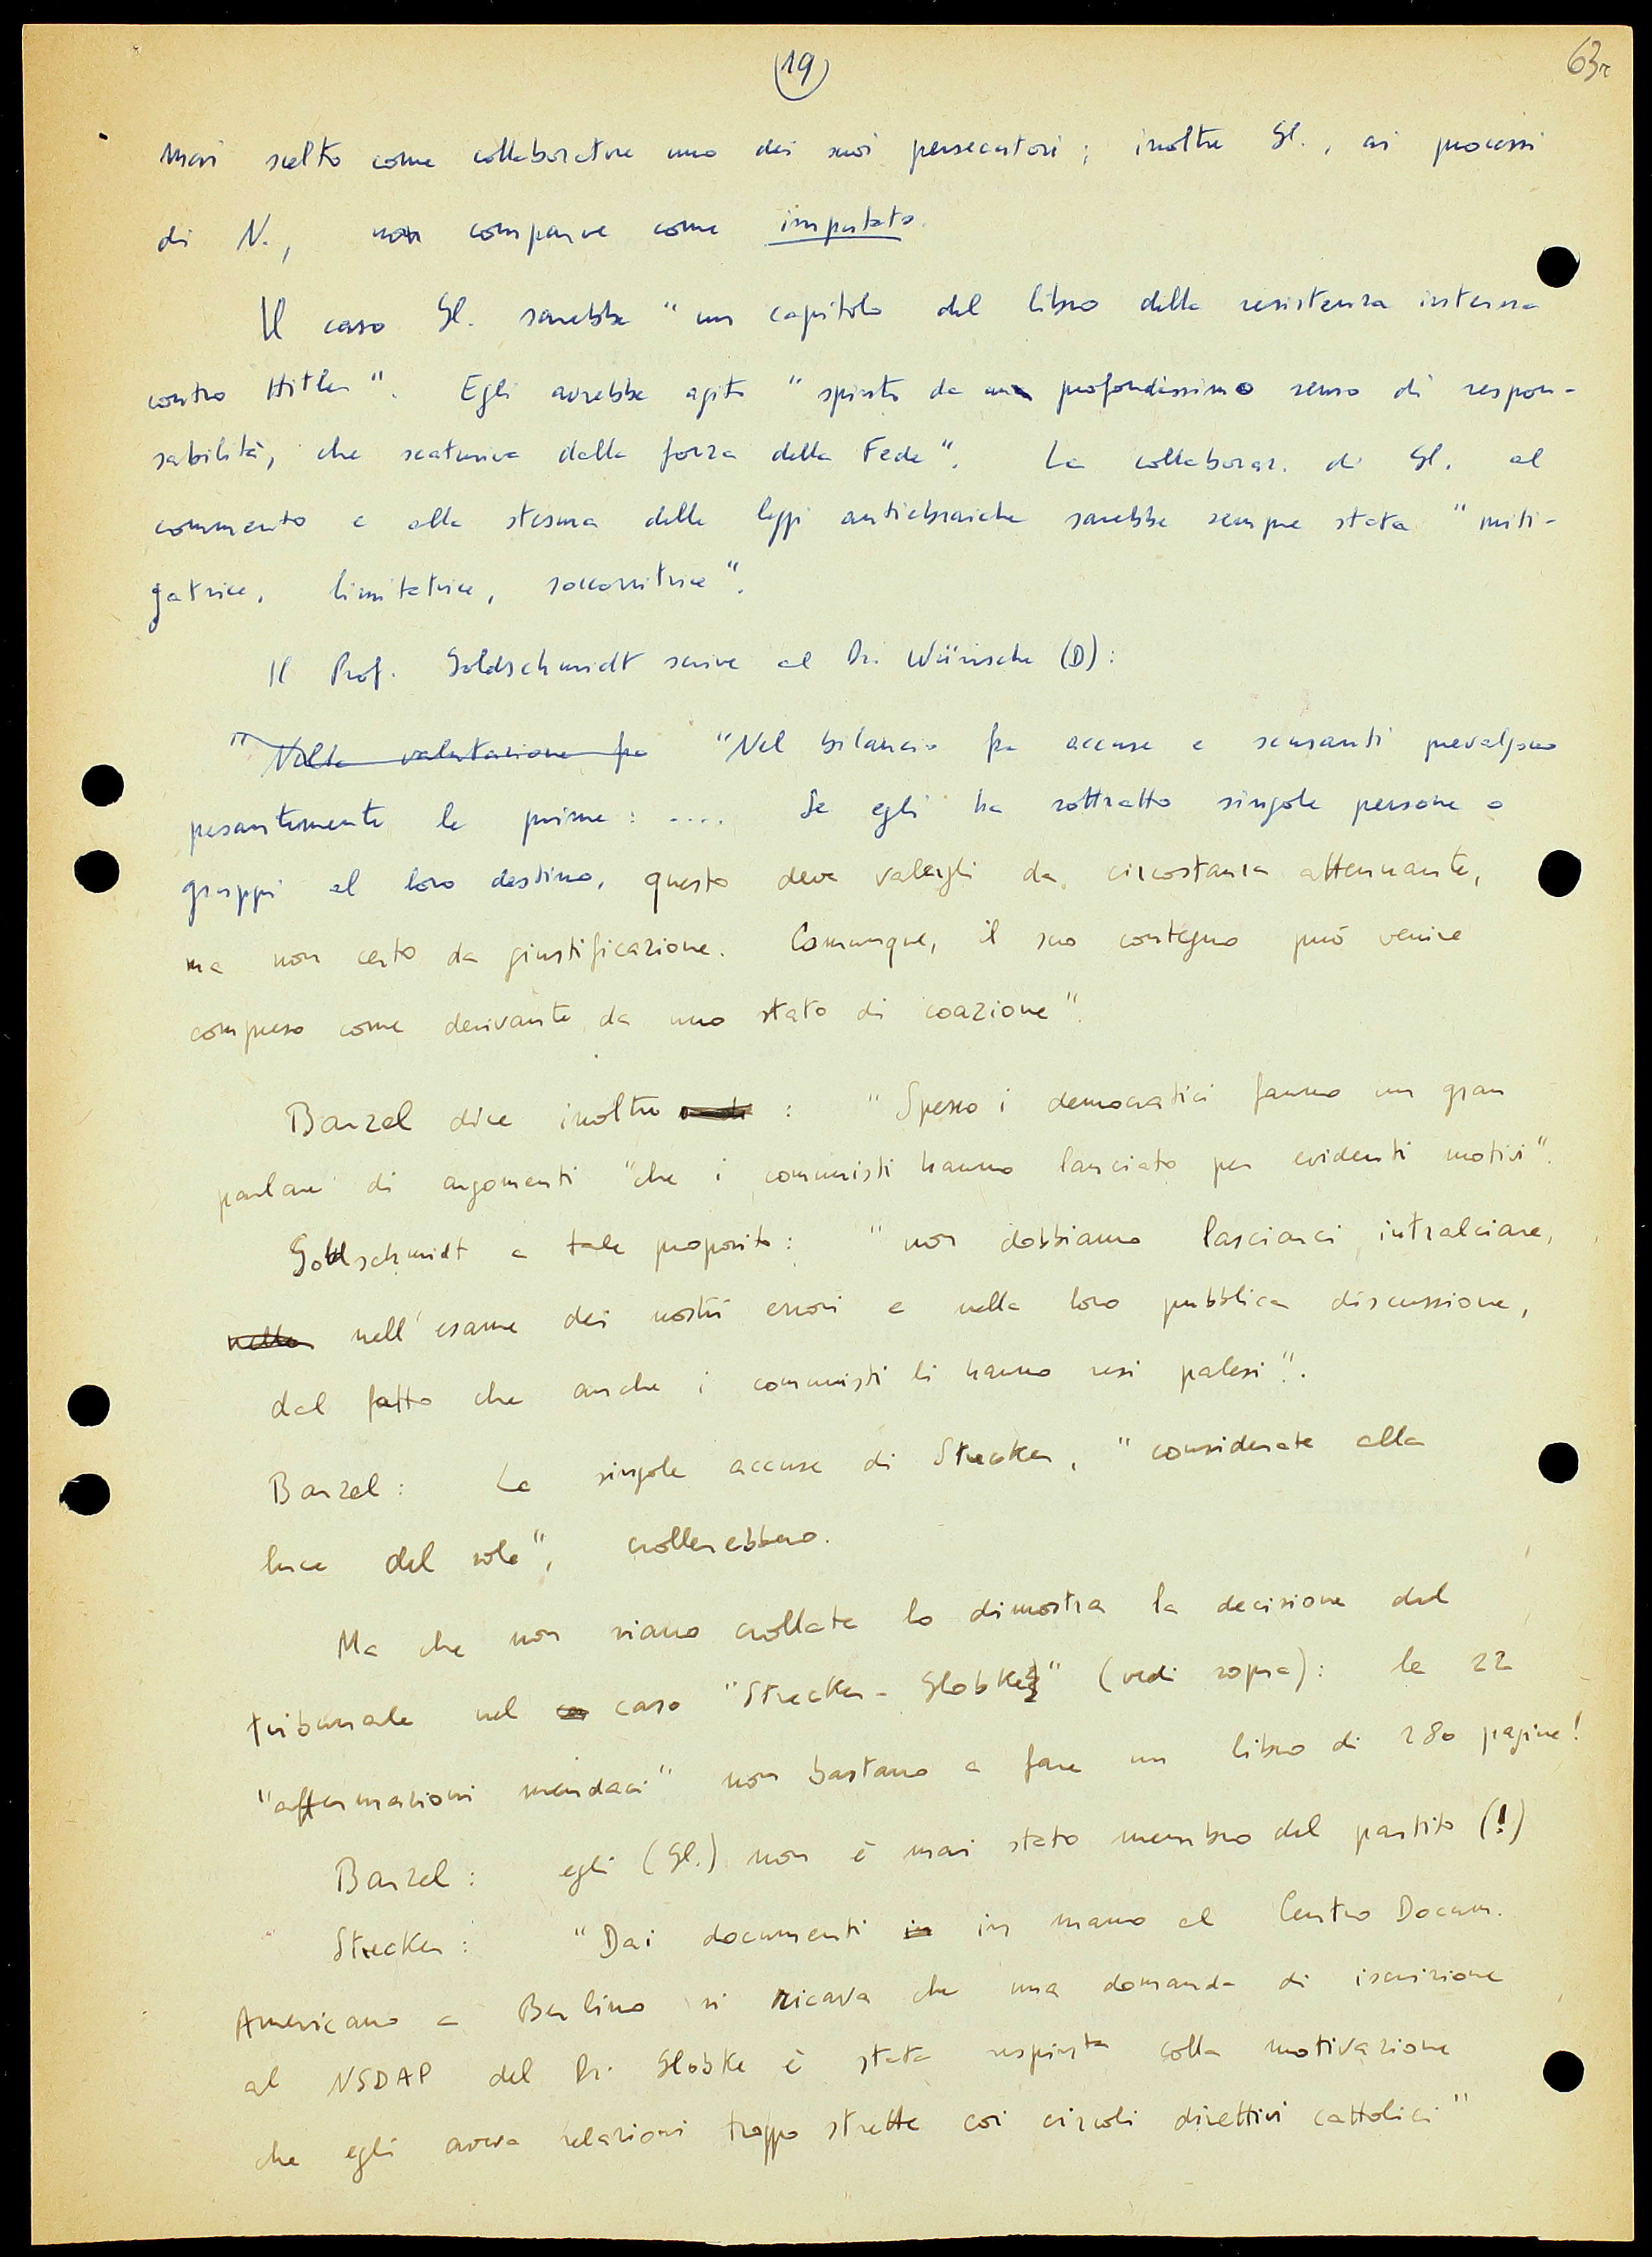 (19)
63r
mai scelto come collaboratore uno dei suoi persecutori; inoltre Gl., ai processi
di N., non comparve come imputato.
Il caso Gl. sarebbe "un capitolo del libro della resistenza interna
contro Hitler". Egli avrebbe agito "spinto da un profondissimo senso di respon-
sabilità, che scaturiva dalla forza della Fede". La collaboraz. di Gl. al
commento e alla stesura delle leggi antiebraiche sarebbe sempre stata "miti-
gatrice, limitatrice, soccorritrice".
Il Prof. Goldschmidt scrive al Dr. Wünsche (D):
"Nella valutazione fra "Nel bilancio fra accuse e scusanti prevalgono
pesantemente le prime: .... Se egli ha sottratto singole persone o
gruppi al loro destino, questo deve valergli da circostanza attenuante,
ma non certo da giustificazione. Comunque, il suo contegno può venire
compreso come derivante da uno stato di coazione".
Barzel dice inoltre : "Spesso i democratici fanno un gran
parlare di argomenti "che i comunisti hanno lanciato per evidenti motivi".
Goldschmidt a tale proposito: "non dobbiamo lasciarci intralciare,
nella nell'esame dei nostri errori e nella loro pubblica discussione,
dal fatto che anche i comunisti li hanno resi palesi".
Barzel: Le singole accuse di Strecker, "considerate alla
luce del sole", crollerebbero.
Ma che non siano crollate lo dimostra la decisione del
tribunale nel ca caso "Strecker - Globke" (vedi sopra): le 22
"affermazioni mendaci" non bastano a fare un libro di 280 pagine!
Barzel: egli (Gl.) non è mai stato membro del partito (!)
Strecker: "Dai documenti in in mano al Centro Docum.
Americano a Berlino si ricava che una domanda di iscrizione
al NSDAP del Dr. Globke è stata respinta colla motivazione
che egli aveva relazioni troppo strette coi circoli direttivi cattolici"